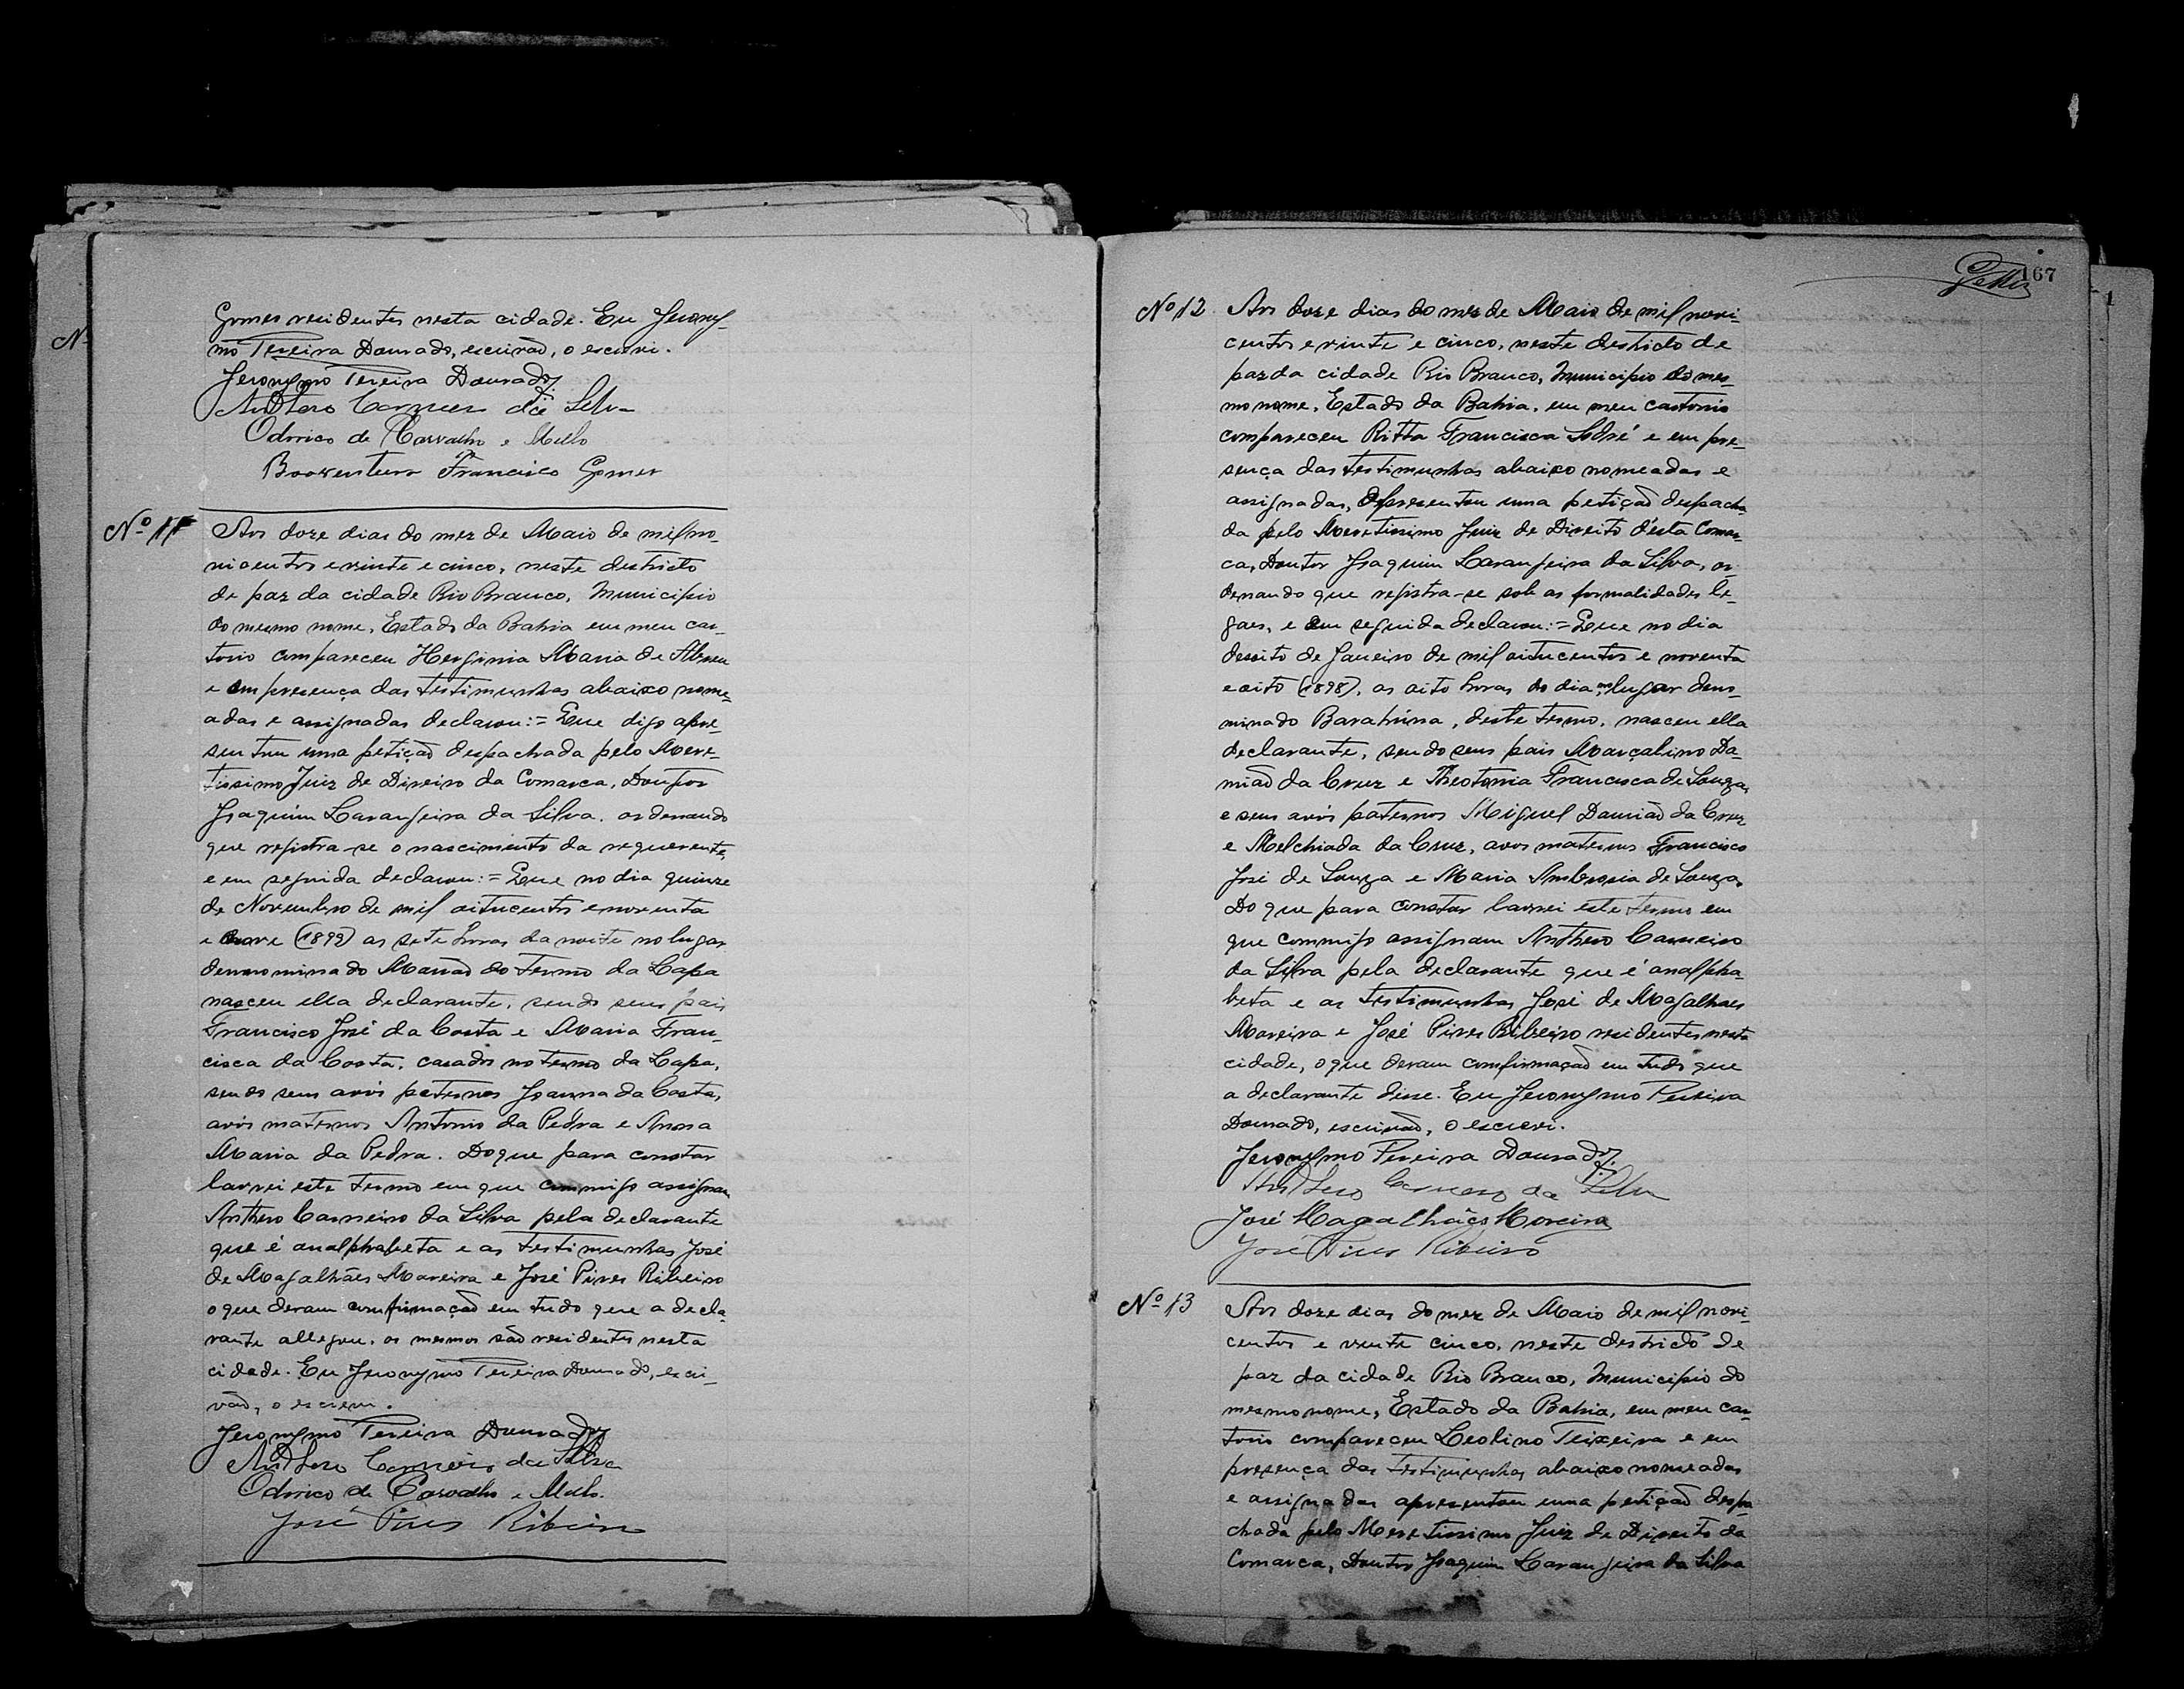 Gomes residentes nesta cidade. Eu Jerony-
mo Pereira Dourado, escrivaõ, o escrevi.
Jeronymo Pereira Dourado
Anthero Carneiro da Silva
Odorico de Carvalho e Mello
Boaventura Francisco Gomes
Nº 11
Aos doze dias do mez de Maio de mil no-
vicentos e vinte e cinco, neste destricto
de paz da cidade Rio Branco, Municipio
do mesmo nome, Estado da Bahia em meu car-
torio compareceu Herginia Maria de Abreu
e em presença das testimunhas abaixo nome-
adas e assignadas declarou:= Que digo apre-
sentou uma petiçaõ despachada pelo Mere-
tissimo Juiz de Direiro da Comarca, Doutor
Joaquim Laranjeira da Silva, ordenando
que registra-se o nascimento da requerente,
e em seguida declarou:= Que no dia quinze
de Novembro de mil oitucentos e noventa
e nove (1899) as sete horas da noite no lugar
denominado Marão do Termo da Lapa
nasceu ella declarante, sendo seus pais
Francisco José da Costa e Maria Fran-
cisca da Costa, casados no termo da Lapa,
sendo seus avós paternos Joanna da Costa,
avós maternos Antonio da Pedra e Anna
Maria da Pedra. Do que para constar
lavrei este termo em que commigo assignam
Anthero Carneiro da Silva pela declarante
que é analphabeta e as testimunhas José
de Magalhães Moreira e José Pires Ribeiro
o que deram comfirmaçaõ em tudo que a decla-
rante allegou, os mesmos saõ residentes nesta
cidade. Eu Jeronymo Pereira Dourado, escri-
vaõ, o escrevi.
Jeronymo Pereira Dourado
Anthero Carneiro da Silva
Odorico de Carvalho e Mello.
José Pires Ribeiro
167
Nº 12
Aos doze dias do mez de Maio de mil novi-
centos e vinte e cinco, neste destricto de
paz da cidade Rio Branco, Municipio do mes-
mo nome, Estado da Bahia, em meu cartorio
compareceu Ritta Francisca Sodré e em pre-
sença das testimunhas abaixo nomeadas e
assignadas, apresentou uma petiçaõ despacha-
da pelo Meretissimo Juiz de Direito d'esta Comar-
ca, Doutor Joaquim Laranjeira da Silva, or-
denando que registra-se sob as formalidades le-
gaes, e em seguida declarou:= Que no dia
desoito de Janeiro de mil oitucentos e noventa
e oito (1898), as oito horas do dia, no lugar deno-
minado Barahúna, deste termo, nasceu ella
declarante, sendo seus pais Marçalino Da-
miaõ da Cruz e Theotonia Francisca de Souza,
e seus avós paternos Miguel Damiaõ da Cruz
e Melchiada da Cruz, avos maternos Francisco
José de Souza e Maria Ambrosia de Souza.
Do que para constar lavrei este termo em
que commigo assignam Anthero Carneiro
da Silva pela declarante que é analpha-
beta e as testimunhas José de Magalhaes
Moreira e José Pires Ribeiro residentes nesta
cidade, o que deram comfirmaçaõ em tudo que
a declarante disse. Eu Jeronymo Pereira
Dourado, escrivaõ, o escrevi.
Jeronymo Pereira Dourado
Anthero Carneiro da Silva
José Magalhães Moreira
José Pires Ribeiro
Nº 13
Aos doze dias do mez de Maio de mil novi-
centos e vente cinco, neste destricto de
paz da cidade Rio Branco, Municipio do
mesmo nome, Estado da Bahia, em meu car-
torio compareceu Leolino Teixeira e em
presença das testimunhas abaixo nomeadas
e assignadas apresentou uma petiçaõ despa-
chada pelo Meretissimo Juiz de Direito da
Comarca, Doutor Joaquim Laranjeira da Silva